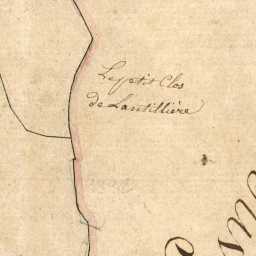 Le petit Clos
de Lantillière